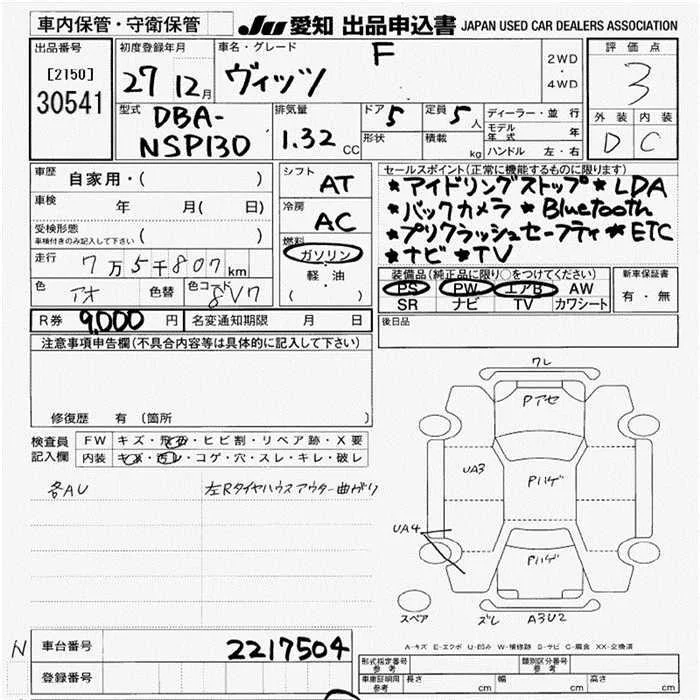 車内保管・守衛保管
JU 愛知 出品申込書 JAPAN USED CAR DEALERS ASSOCIATION
出品番号
[2150]
30541
初度登録年月
27 12月
車名・グレード
F
ヴィッツ
2WD
・
4WD
評価点
3
外装 内装
D C
型式
DBA-
NSP130
排気量
1.32 CC
ドア 5
形状
定員 5人
積載 kg
ディーラー・並行
モデル年式 年
ハンドル 左・右
車歴 自家用・( )
車検 年 月( 日)
受検形態
車検付きのみ記入して下さい ( )
走行 7万5千807km
色 アオ 色替 色コード 8V7
シフト
AT
冷房
AC
燃料
ガソリン
軽・油
( )
セールスポイント(正常に機能するものに限ります)
*アイドリングストップ*LDA
*バックカメラ*Bluetooth
*プリクラッシュセーフティ*ETC
*ナビ*TV
装備品(純正品に限り○をつけてください)
PS PW エアB AW
SR ナビ TV カワシート
新車保証書
有・無
R券 9,000 円 名変通知期限 月 日
後日品
注意事項申告欄(不具合内容等は具体的に記入して下さい)
修復歴 有 (箇所 )
検査員
記入欄
FW キズ・飛石・ヒビ割・リペア跡・X要
内装 キズ・汚レ・コゲ・穴・スレ・キレ・破レ
各AU 左Rタイヤハウスアウター曲がり
ワレ
Pアセ
UA3
Pハゲ
UA4
Pハゲ
スペア
ズレ A3U2
A-キズ E-エクボ U-凹み W-補修跡 S-サビ C-腐食 XX-交換済
N
車台番号 2217504
登録番号
形式指定番号
参考
類別区分番号
参考
車庫証明用
参考
長さ cm 幅 cm 高さ cm